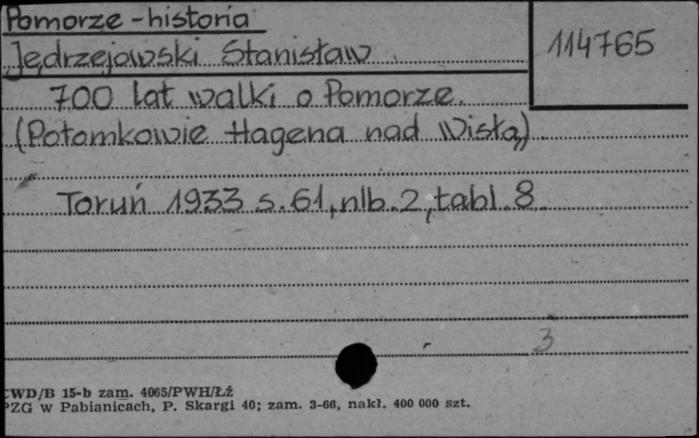 Pomorze - historia
Jędrzejowski Stanisław
114765
700 lat walki o Pomorze.
(Potomkowie Hagena nad Wisłą)
Toruń 1933 s. 61, nlb. 2, tabl. 8
3
CWD/B 15-b zam. 4065/PWH/Łź
PZG w Pabianicach, P. Skargi 40; zam. 3-66, nakł. 400 000 szt.